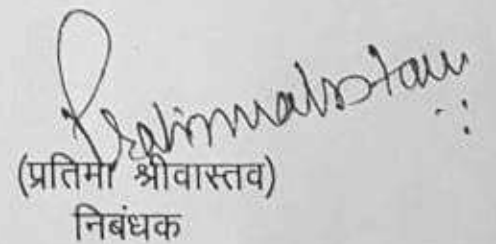 (प्रतिमा श्रीवास्तव)
निबंधक